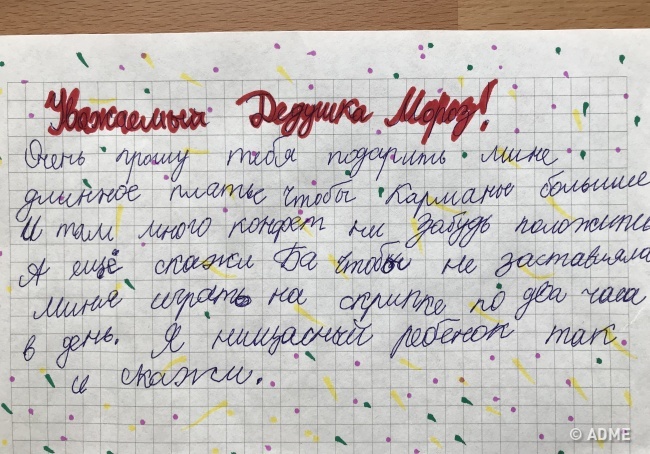 Уважаемый Дедушка Мороз!
Очень прошу тебя подарить мине
длинное платье чтобы карманы большие
И там много конфет ни забудь положить
А ещё скажи Ба чтобы не заставляла
миня играть на скрипке по два часа
в день. Я нищасный ребёнок так
и скажи.
© ADME